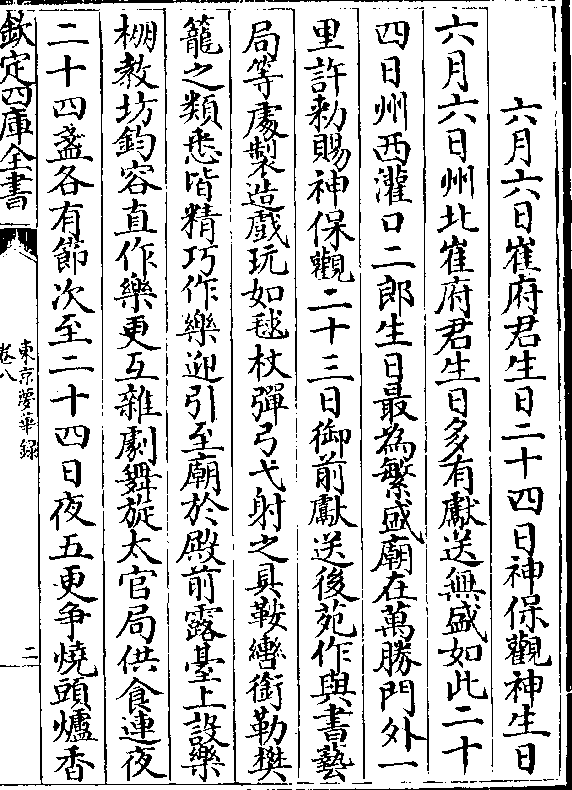 六月六日崔府君生日二十四日神保觀神生日
六月六日州北崔府君生日多有獻送無盛如此二十
四日州西灌口二郎生日最為繁盛廟在萬勝門外一
里許勅賜神保觀二十三日御前獻送後苑作與書藝
局等處製造戲玩如毬杖彈弓弋射之具鞍轡銜勒樊
籠之類悉皆精巧作樂迎引至廟於殿前露䑓上設樂
棚教坊鈞容直作樂更互雜劇舞旋太官局供食連夜
二十四盞各有節次至二十四日夜五更爭燒頭爐香
欽定四庫全書
東京夢華録
卷八
二